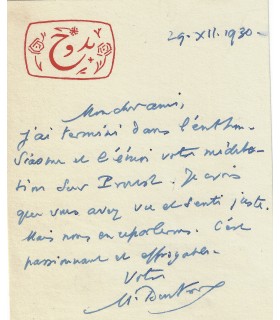 بدوح
29.XII.1930-
Mon cher ami,
j'ai terminé dans l'enthou-
siasme et l'émoi votre médita-
tion sur Proust. Je crois
que vous avez vu et senti juste.
Mais nous en reparlerons. C'est
passionnant et effroyable.
Votre